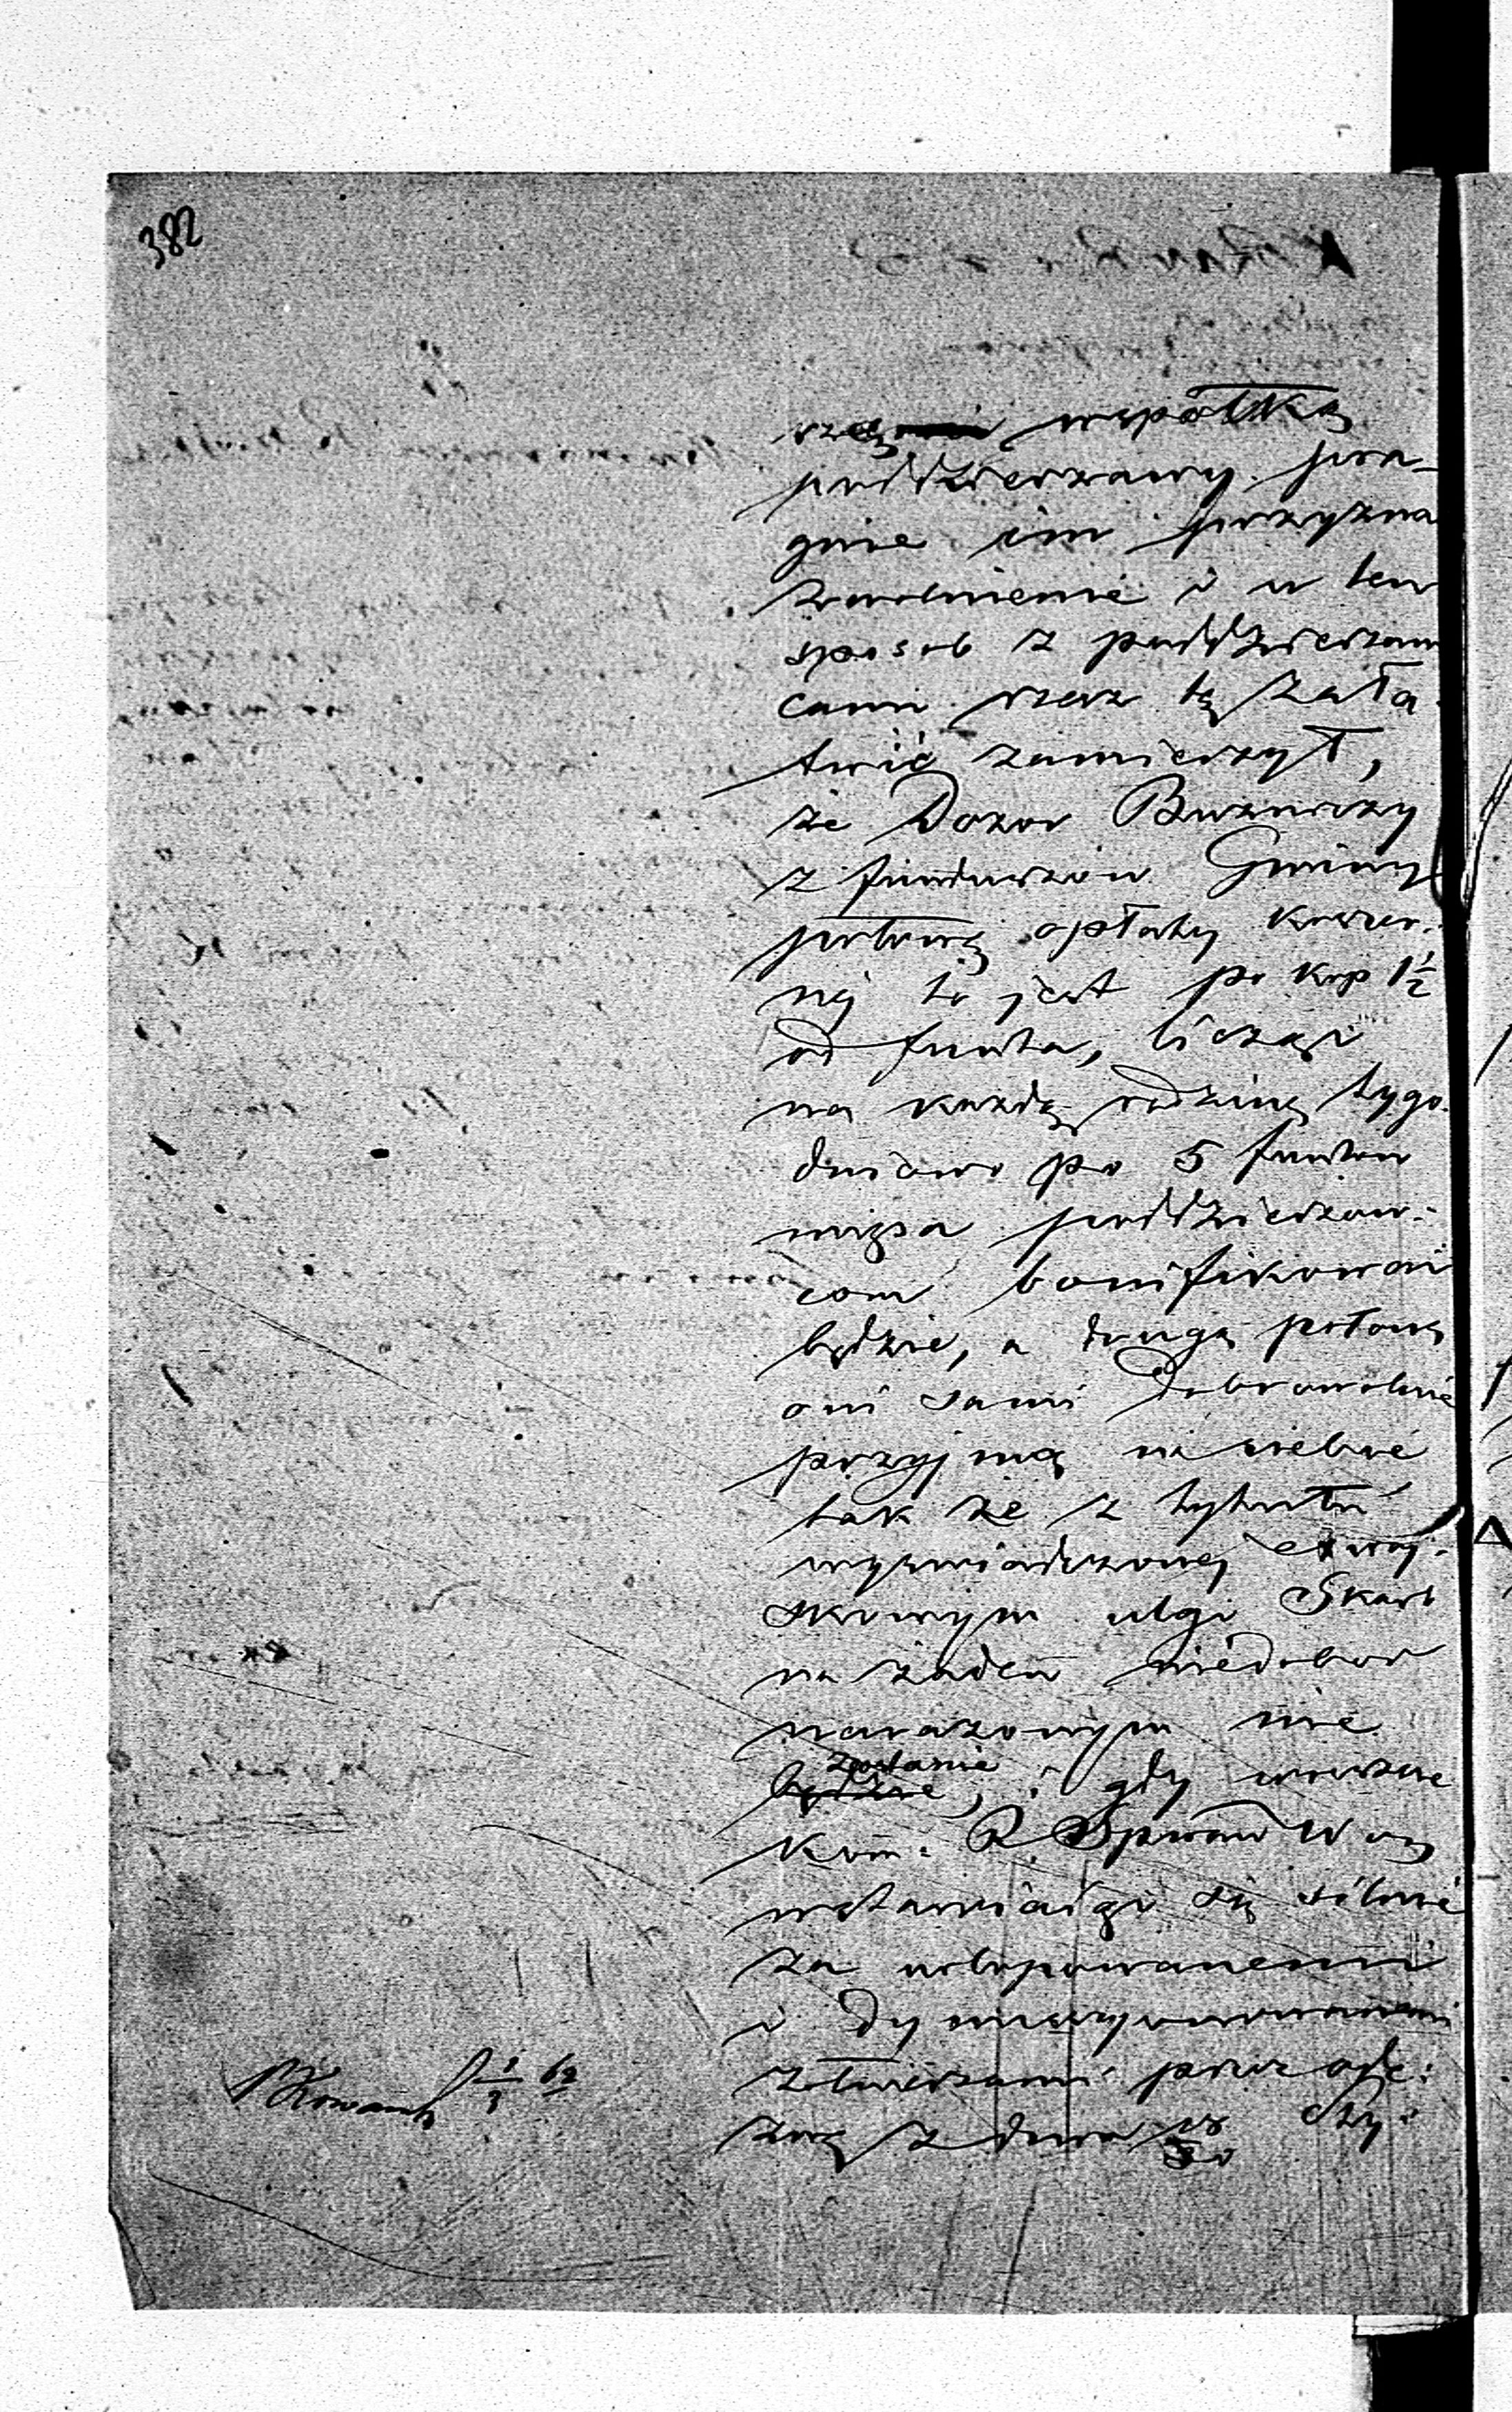 382
współką
poddzierzawy pra-
gnie im przyzna
zwolnienie i w ten
sposob z poddzierzaw
cami rzecz tę zała
twić zamierzył,
że Dozor Bużniczy
z funduszów Gminy
połowę opłaty koszer-
nej to jest po kop 1½
od funta, licząc
na każdą rodzinę tygo-
dniowo po 5 funtów
mięsa poddzierzaw-
com bonifikować
będzie, a drugą połowę
oni sami dobrowolnie
przyjmą na siebie
tak że z tytułu
wyświadczonej exwoj-
skowym ulgi Skarb
na żaden niedobór
narażonym nie
zostanie
będzie, i gdy wreszcie
Kom. R. Spraw W
wstawiając się silnie
za urlopowanemi
i dymisyonowanemi
żołnierzami przez ode-
zwę z dnia 18/30 Sty-